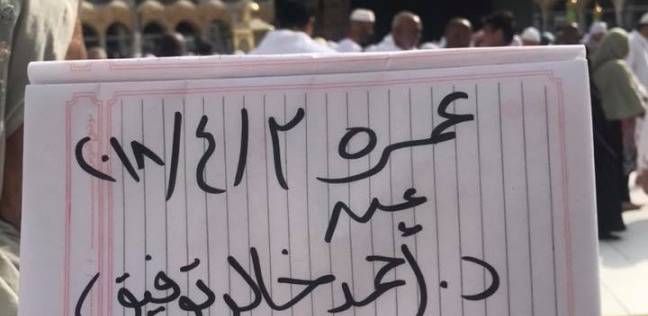 عمره ٢/٤/٢٠١٨
عن
د. (أحمد خالد توفيق)